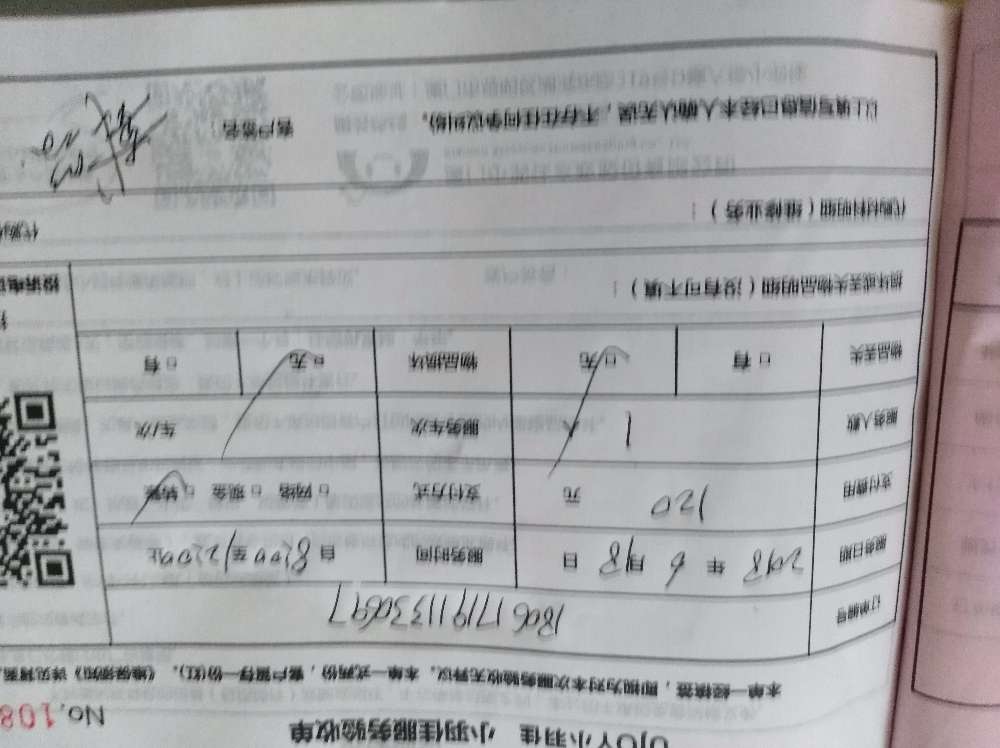 小羽佳 小羽佳服务验收单
No.108
本单一经核签，即视为对本次服务验收无异议。本单一式两份，客户留存一份(红)。《维保须知》详见背面
订单编号 1806171911330697
服务日期 2018 年 6 月 18 日 服务时间 自 8:00 至 12:00 止
支付费用 120 元 支付方式 □ 网络 □ 现金 □ 转账
服务人数 1 人 服务车次 车/次
物品丢失 □ 有 □ 无 物品损坏 □ 无 □ 有
损坏或丢失物品明细（没有可不填）：
投诉电
代购材料明细（维修业务）：
代购
以上填写信息已经本人确认无误，不存在任何争议纠纷。 客户签名：